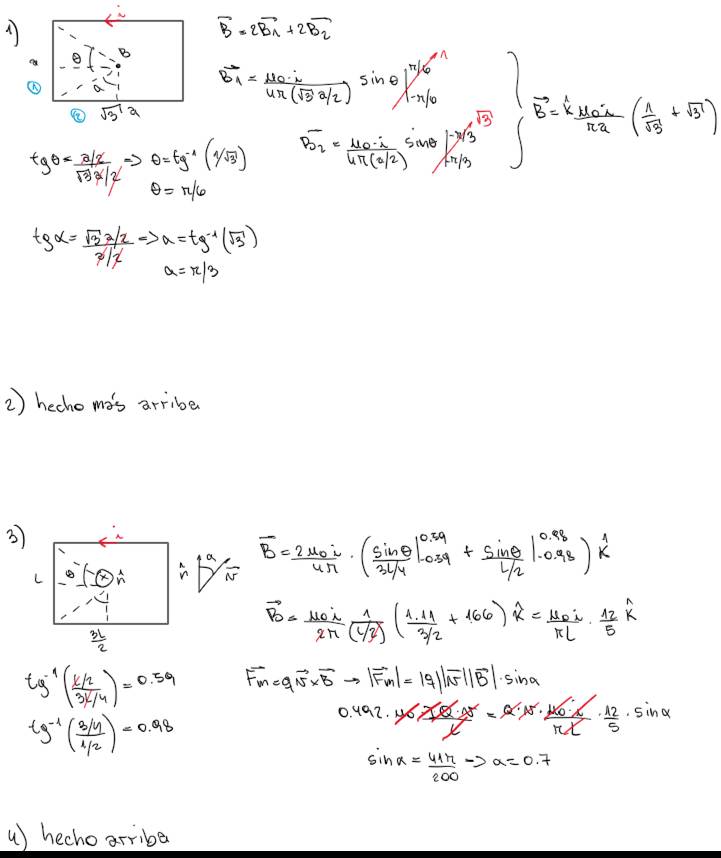 1)
i
θ
B
a
a
1
2
√3 a
B = 2B1 + 2B2
B1 = μ0·i / 4π(√3 a/2) sin θ |π/6 -π/6 1
B2 = μ0·i / 4π(a/2) sin θ |-π/3 -π/3 √3
B = k μ0 i / πa (1/√3 + √3)
tg θ = a/2 / √3 a/2 => θ = tg⁻¹ (1/√3)
θ = π/6
tg α = √3 a/2 / a/2 => a = tg⁻¹ (√3)
a = π/3
2) hecho más arriba
3)
i
L
θ
n
3L/2
n a v
B = 2μ0 i / 4π · (sin θ / 3L/4 |0.59 -0.59 + sin θ / L/2 |0.98 -0.98) k
B = μ0 i / 2π 1/(L/2) (1.11 / 3/2 + 1.66) k = μ0 i / πL · 12/5 k
tg⁻¹ (L/2 / 3L/4) = 0.59
tg⁻¹ (3/4 / 1/2) = 0.98
Fm = q v × B → |Fm| = |q||v||B| · sin a
0.492 · μ0 IQ·v / L = Q·v · μ0·i / πL · 12/5 · sin α
sin α = 41π / 200 -> a = 0.7
4) hecho arriba